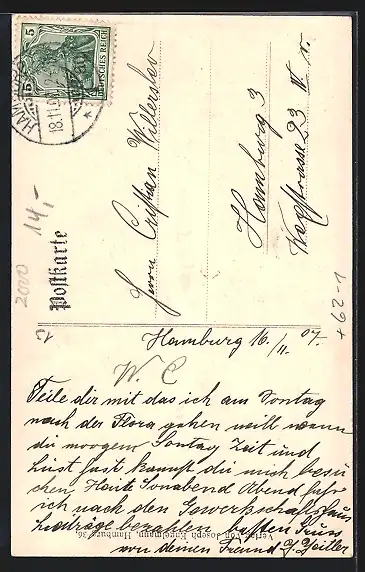 Postkarte
5
DEUTSCHES REICH
HAMBURG
18.11.07
Herrn Cristian Willersler
Hamburg 3
Wexstrasse 23 IV r.
14,-
2000
+62-1
Hamburg 16/11. 07.
W. C
Teile dir mit das ich am Sontag
nach der Flora gehen will wenn
du morgen Sontag Zeit und
Lust hast kannst du mich besu-
chen Heute Sonabend Abend fahr
ich nach den Gewerkschaftshaus
beiträge bezahlen besten Gruss
von deinen Freund J. Zeitler
Verlag von Joseph Engelmann, Hamburg 36.